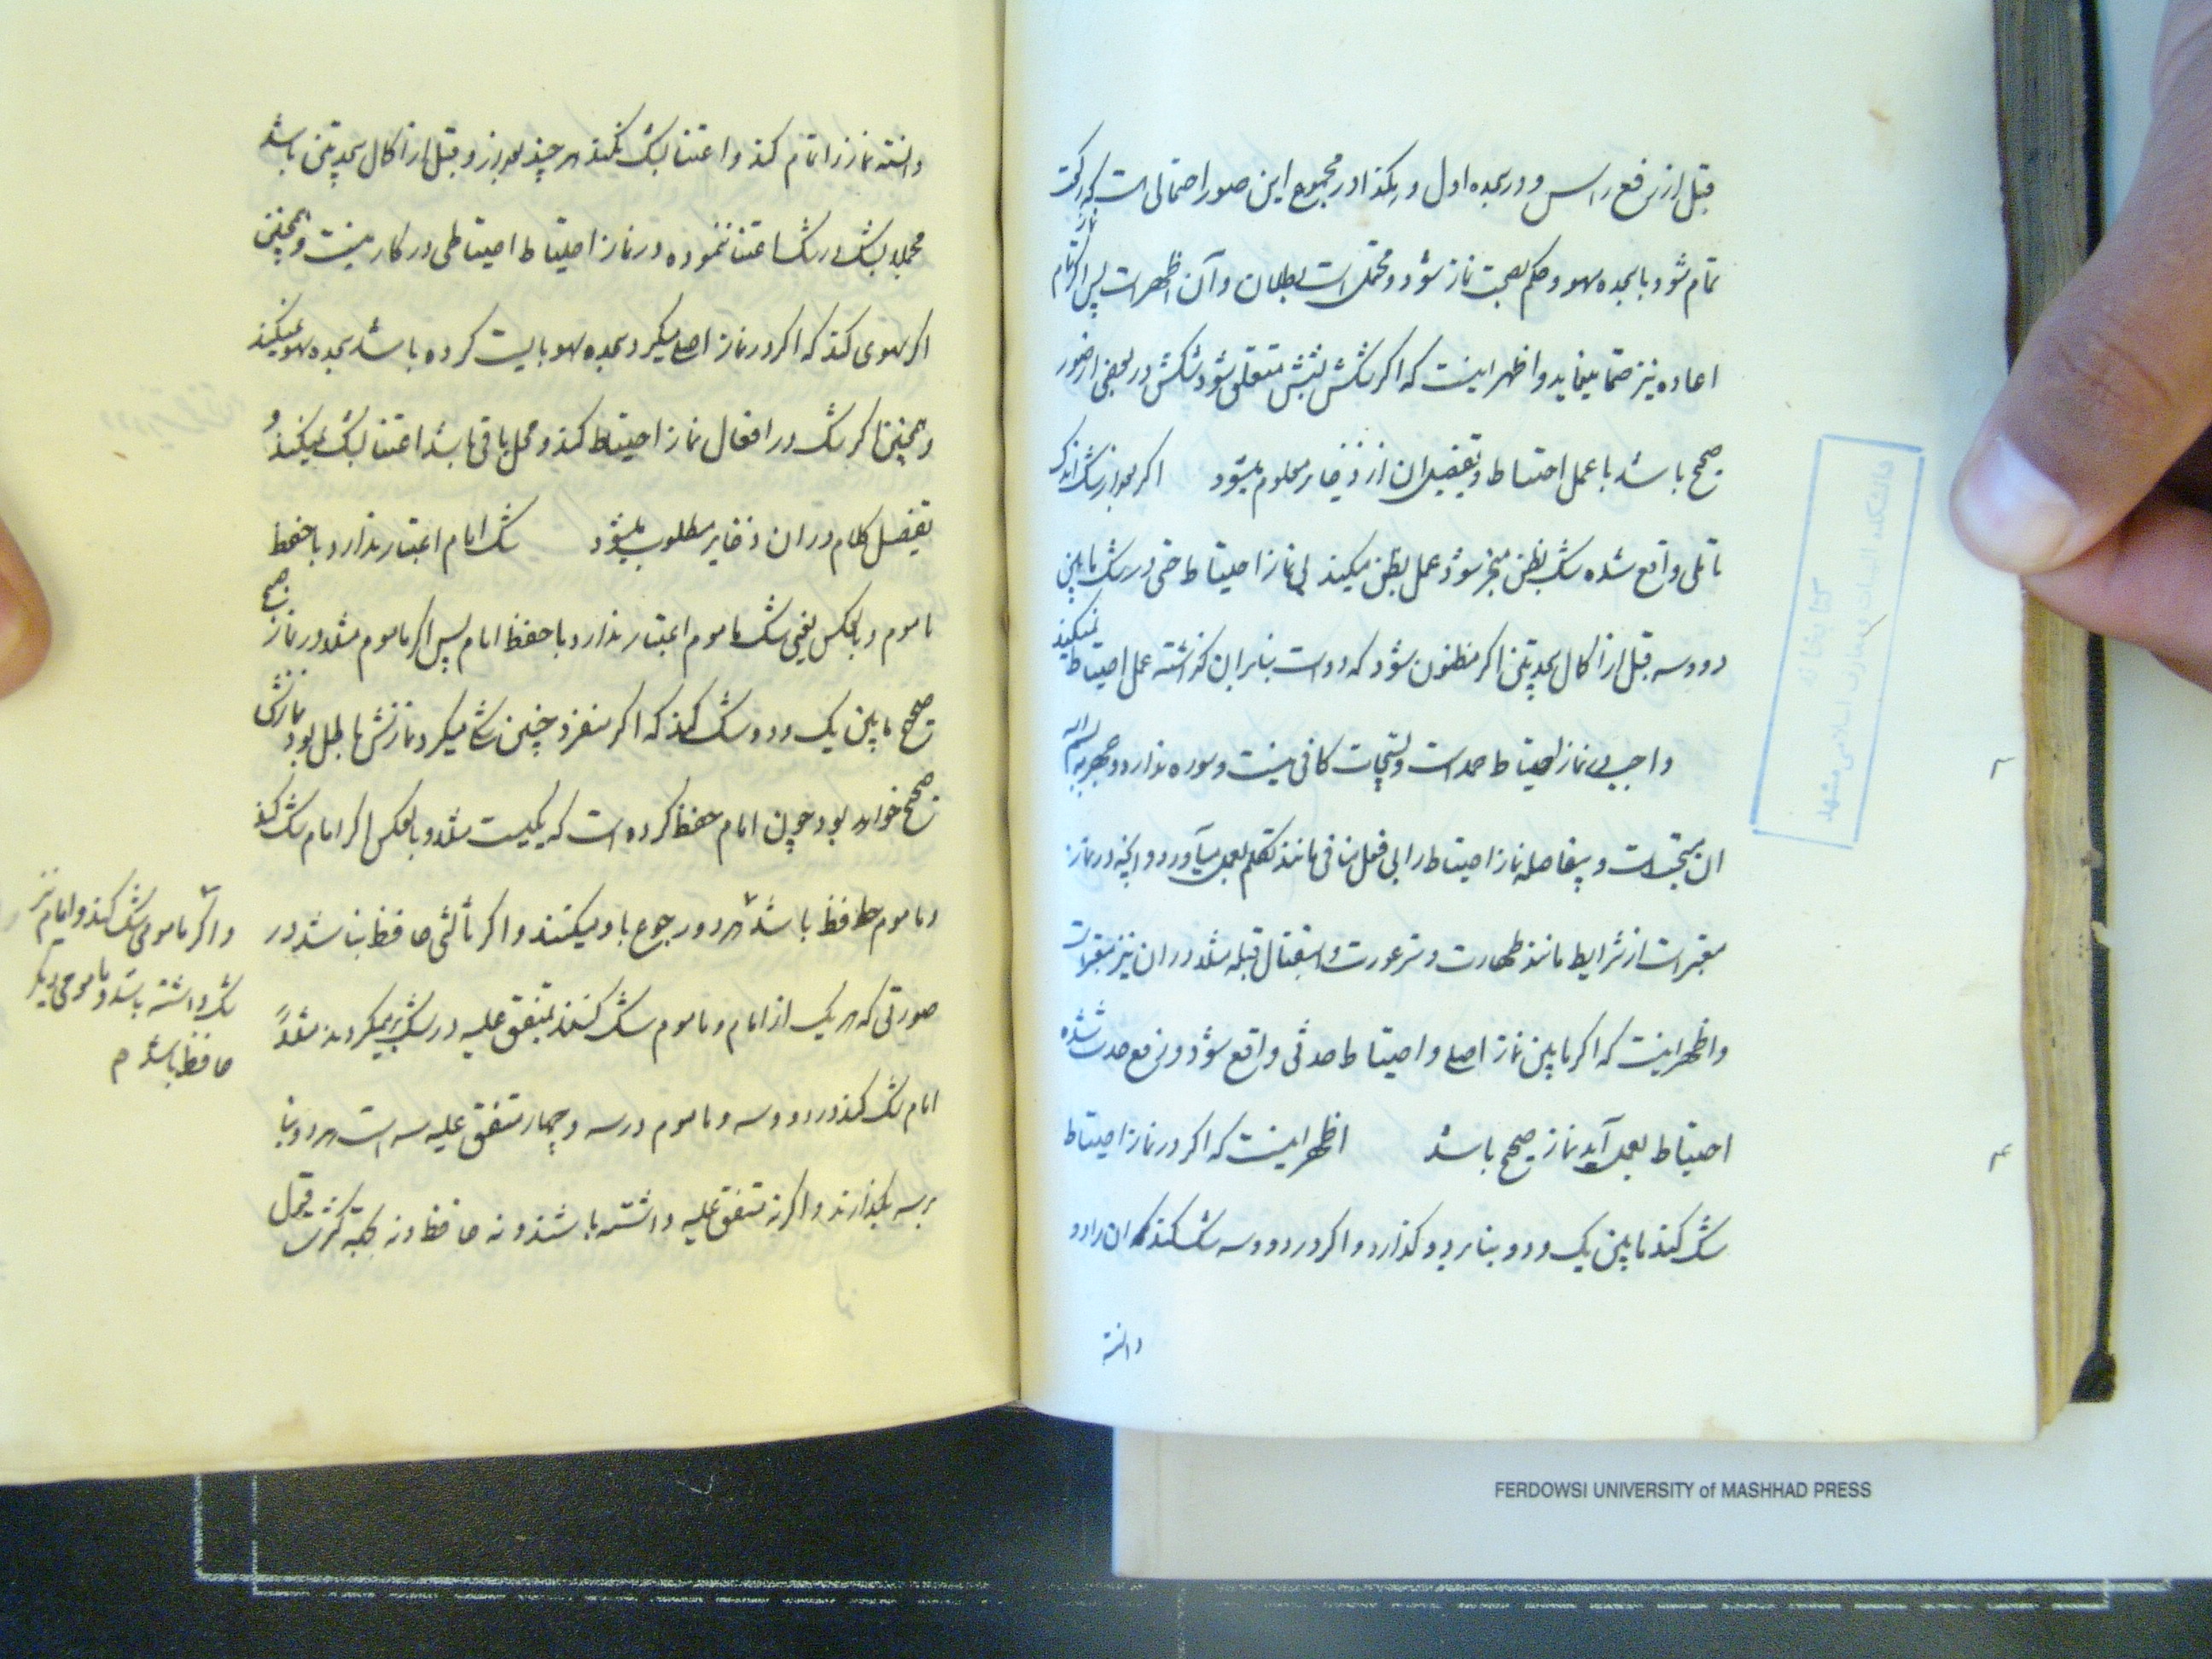 قبل از رفع راس و در سجده اول و یکذا در مجموع این صور احتمالی است که رکعت
تمام شود با سجده سهو و حکم بصحت نماز شود و محتمل است بطلان و آن اظهر است پس اگر نماز تمام
اعاده نیز حتما مینماید و اظهر اینست که اگر شکش بشش متعلق شود شکش در بعضی از صور
صحیح باشد با عمل احتیاط و تفصیل ان از ذخایر معلوم میشود اگر بعد از شک اندک
تاملی واقع شده شک بظن منجر شود عمل بظن میکند بی نماز احتیاط حتی در شک مابین
دو و سه قبل از اکمال سجدتین اگر مظنون شود که دو است بنابر ان گذاشته عمل احتیاط نمیکند
واجب در نماز احتیاط حمد است و تسبیحات کافی نیست و سوره ندارد و جهر به بسم الله
ان مستحب است و بیفاصله نماز احتیاط را بی فعل منافی مانند تکلم بعمل میآورد و انچه در نماز
معتبر است از شرایط مانند طهارت و ستر عورت و استقبال قبله مثلا در ان نیز معتبر است
و اظهر اینست که اگر مابین نماز اصلی و احتیاط حدثی واقع شود و رفع حدث شده
احتیاط بعمل آید نماز صحیح باشد اظهر اینست که اگر در نماز احتیاط
شک کند مابین یک و دو بنا بر دو گذارد و اگر در دو و سه شک کند که ان را دو
دانسته
دانسته نماز را تمام کند و اعتنا بشک نکند هر چند بعد از و قبل از اکمال سجدتین باشد
مجملا بشک در شک اعتنا ننموده در نماز احتیاط احتیاطی در کار نیست و همچنین
اگر سهوی کند که اگر در نماز اصلی میکرد سجده سهو بایست کرده باشد سجده سهو نمیکند
و همچنین اگر شک در افعال نماز احتیاط کند و محل باقی باشد اعتنا بشک نمیکند و
تفصیل کلام در ان ذخایر مطلوب میشود شک امام اعتبار ندارد با حفظ
ماموم و بالعکس یعنی شک ماموم اعتبار ندارد با حفظ امام پس اگر ماموم مثلا در نماز صبح
مابین یک و دو شک کند که اگر منفرد چنین شک میکرد نمازش باطل بود نمازش
صحیح خواهد بود چون امام حفظ کرده است که یکیست مثلا و بالعکس اگر امام شک کند
و ماموم حافظ باشد هر دو رجوع باو میکنند و اگر ثالثی حافظ نباشد در
صورتی که هر یک از امام و ماموم شک کنند بمتفق علیه در شک بر میگردند مثلا
امام شک کند در دو و سه و ماموم در سه و چهار متفق علیه سه است هر دو بنا
بر سه بگذارند و اگر نه متفق علیه داشته باشند و نه حافظ و نه
و اگر مامومی شک کند و امام نیز
شک داشته باشد و مامومی دیگر
حافظ باشد م
FERDOWSI UNIVERSITY of MASHHAD PRESS